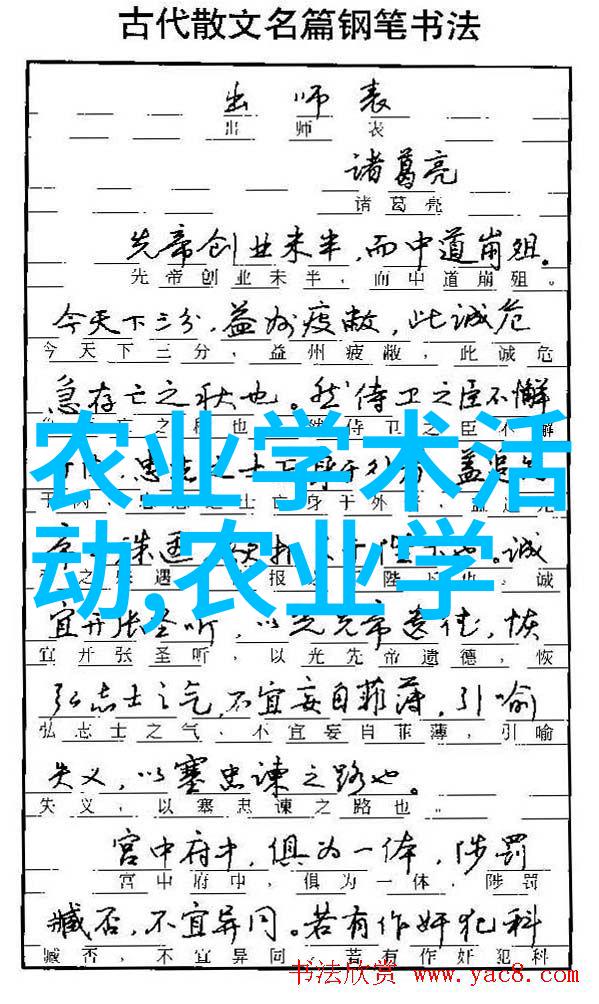 古代散文名篇钢笔书法
出师表
出师表
诸葛亮
诸葛亮
先帝创业未半，而中道崩殂。
先帝创业未半，而中道崩殂。
今天下三分，益州疲敝，此诚危
今天下三分，益州疲敝，此诚危
急存亡之秋也。然侍卫之臣不懈
亡之秋也 侍卫之臣不懈
农业学术活
忠志之士 身于外 盖追先
士 身于外 盖追先
动,农业学
殊遇 报 也。诚
之殊遇 报 陛下也。诚
宜开张圣听，以光先帝遗德，恢
宜开张圣听，以光先帝遗德，恢
弘志士之气，不宜妄自菲薄，引喻
弘志士之气，不宜妄自菲薄，引喻
失义，以塞忠谏之路也。
失义，以塞忠谏之路也。
宫中府中，俱为一体，陟罚
宫中府中，俱为一体，陟罚
臧否，不宜异同。若有作奸犯科
臧否，不宜异同。若有作奸犯科
书法欣赏 www.yac8.com